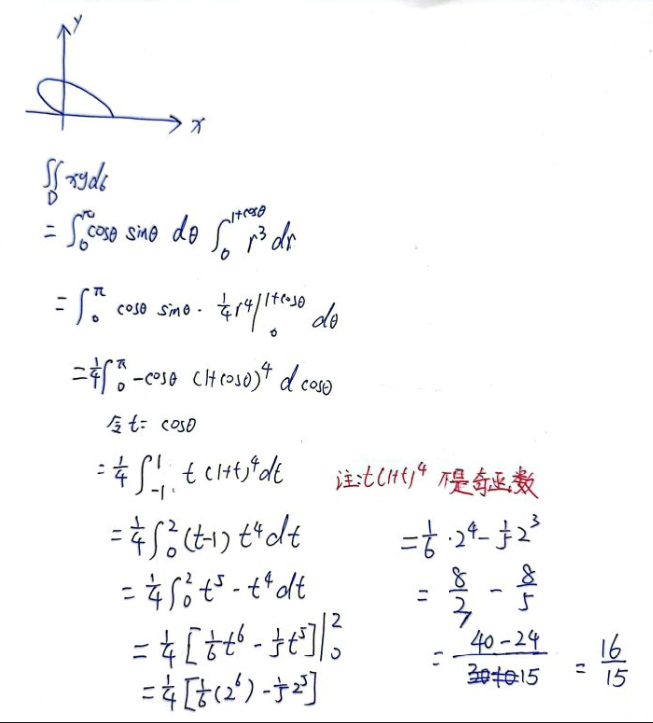 y
x
∬_D xydσ
= ∫_0^π cosθ sinθ dθ ∫_0^{1+cosθ} r^3 dr
= ∫_0^π cosθ sinθ · 1/4 r^4 |_0^{1+cosθ} dθ
= 1/4 ∫_0^π -cosθ (1+cosθ)^4 d cosθ
令 t = cosθ
= 1/4 ∫_{-1}^1 t (1+t)^4 dt
注: t(1+t)^4 不是奇函数
= 1/4 ∫_0^2 (t-1) t^4 dt
= 1/4 ∫_0^2 t^5 - t^4 dt
= 1/4 [1/6 t^6 - 1/5 t^5] |_0^2
= 1/4 [1/6 (2^6) - 1/5 2^5]
= 1/6 · 2^4 - 1/5 2^3
= 8/3 - 8/5
= (40-24)/15 = 16/15